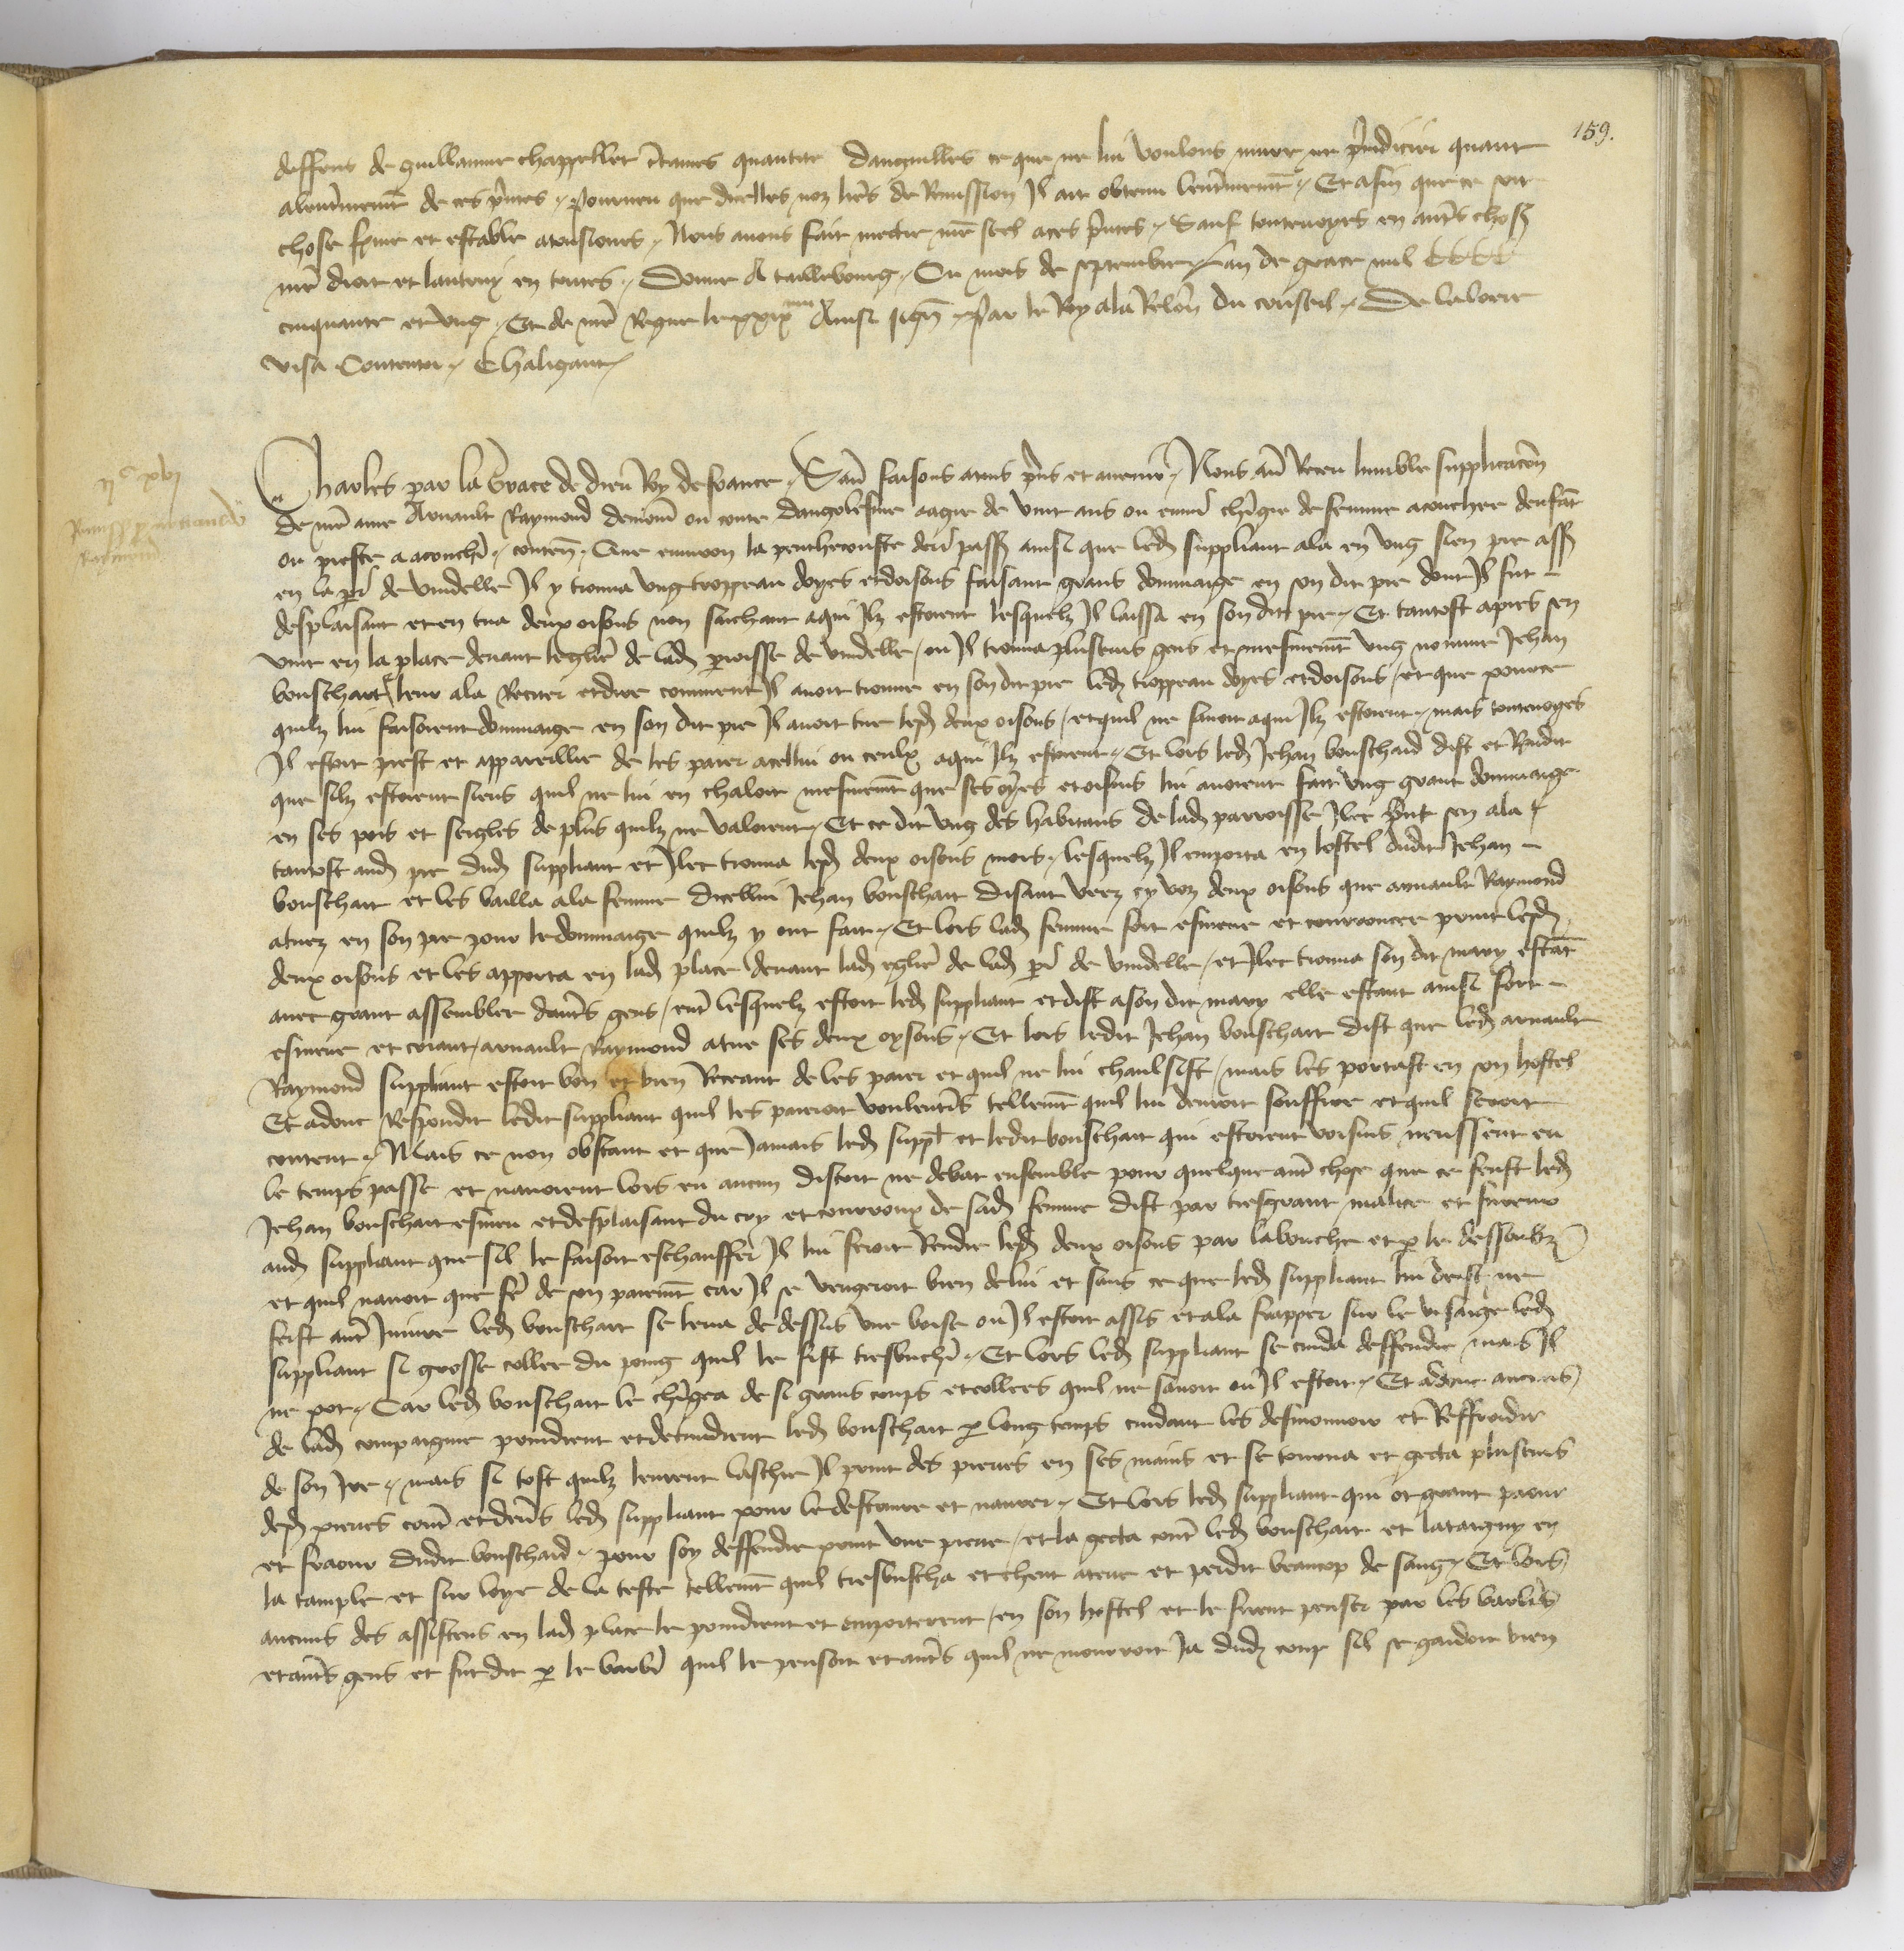 159.
deffens de guillaume chappellet certaines quantite danguilles ce que ne lui voulons nuire ne preiudicier quant
alenterinement de ces presentes pourueu que dicelles noz lettres de Remission Il ait obtenu lenterinement Et afin que ce soit
chose ferme et estable atousiours Nous auons fait mectre nostre seel aces presentes Sauf toutesuoyes en autres choses
nostre droit et lautruy en toutes Donne A taillebourg Ou mois de septembre Lan de grace mil CCCC
cinquante et vng Et de nostre Regne le xxixme Ainsi signe Par le Roy ala Relacion du conseil De laloere
visa Contentor Chaligaut
IIc xvi
Remissio pro arnaudo
Raymond
Charles par la Grace de dieu Roy de france Sauoir faisons atous presens et auenir Nous auoir Receu humble supplicacion
de nostre ame Arnault Raymond demourant ou conte dangolesme aagie de vint ans ou enuiron chargie de femme acouchee denfant
ou preste a acoucher contenant Que enuiron la penthecouste derrenier passee ainsi que ledit suppliant ala en vng sien pre assis
en la parroisse de vindelle Il y trouua vng troppeau doyes et doisons faisant grans dommaige en son dit pre dont Il fut
desplaisant et en tua deux oisons non saichant aqui Ilz estoient lesquelz Il laissa en son dit pre Et tantost apres sen
vint en la place deuant leglise de ladite parroisse de vindelle ou Il trouua pluseurs gens et mesmement vng nomme Jehan
bouschart leur ala Reciter et dire comment Il auoit trouue en son dit pre ledit troppeau doyes et doisons et que pource
quilz lui faisoient dommaige en son dit pre Il auoit tue lesdits deux oisons et quil ne sauoit aqui Ilz estoient mais toutesuoyes
Il estoit prest et appareillie de les paier acellui ou ceulx aqui Ilz estoient Et lors ledit Jehan bouschard dist et Rendit
que silz estoient siens quil ne lui en chaloit mesmement que ses oyes et oisons lui auoient fait vng grant dommaige
en ses pois et seigles de plus quilz ne valoient Et ce dit vng des habitans de ladite parroisse Ilec present sen ala
tantost audit pre dudit suppliant et Ilec trouua lesdits deux oisons mors lesquelz Il emporta en lostel dudit Jehan
bouschart et les bailla ala femme dicellui Jehan bouschart disant veez cy voz deux oisons que arnault Raymond
atuez en son pre pour le dommaige quilz y ont fait Et lors ladite femme fort esmeue et courroucee print lesdits
deux oisons et les apporta en ladite place deuant ladite eglise de ladite parroisse de vindelle et Ilec trouua son dit mary estant
auec grant assemblee dautres gens entre lesquelz estoit ledit suppliant et dist ason dit mary elle estant ainsi fort
esmeue et criant arnault Raymond atue ses deux oysons Et lors ledit Jehan bouschart dist que ledit arnault
Raymond suppliant estoit bon et bien Receant de les paier et quil ne lui chaulsist mais les portast en son hostel
Et adonc Respondit ledit suppliant quil les paieroit voulentiers tellement quil lui deuroit souffire et quil seroit
content Mais ce non obstant et que Jamais ledit suppliant et ledit bouschart qui estoient voisins neussent eu
le temps passe et nauoient lors eu aucun discort ne debat ensemble pour quelque autre chose que ce feust ledit
Jehan bouschart esmeu et desplaisant du cry et courroux de sadite femme dist par tresgrant malice et fureur
audit suppliant que sil le faisoit eschauffer Il lui feroit Rendre lesdits deux oisons par labouche et par le dessoubz
et quil nauoit que faire de son paiement car Il se vengeroit bien delui et sans ce que ledit suppliant lui deist ne
feist autre Iniure ledit bouschart se leua de dessus vne boise ou Il estoit assis et ala frapper sur le visaige ledit
suppliant si grosse collee du poing quil le fist tresbucher Et lors ledit suppliant se cuida deffendre mais Il
ne pot Car ledit bouschart le chargea de si grans coups et collees quil ne sauoit ou Il estoit Et adonc aucuns
de ladite compaignie prindrent et detindrent ledit bouschart par long temps cuidant les desmouuoir et Reffroidir
de son Ire mais si tost quilz leurent laschie Il print des pierres en ses mains et se tourna et gecta pluseurs
desdites pierres contre et deuers ledit suppliant pour le destruire et naurer Et lors ledit suppliant qui ot grant paour
et fraour dudit bouschard pour soy deffendre print vne pierre et la gecta contre ledit bouschart et lataigny en
la temple et sur loye de la teste tellement quil tresbuscha et cheut aterre et perdit beaucop de sang Et lors
aucuns des assistens en ladite place le prindrent et emporterent en son hostel et le firent penser par les barbiers
et autres gens et fut dit par le barbier quil le pensoit et autres quil ne mourroit Ja dudit coup sil se gardoit bien